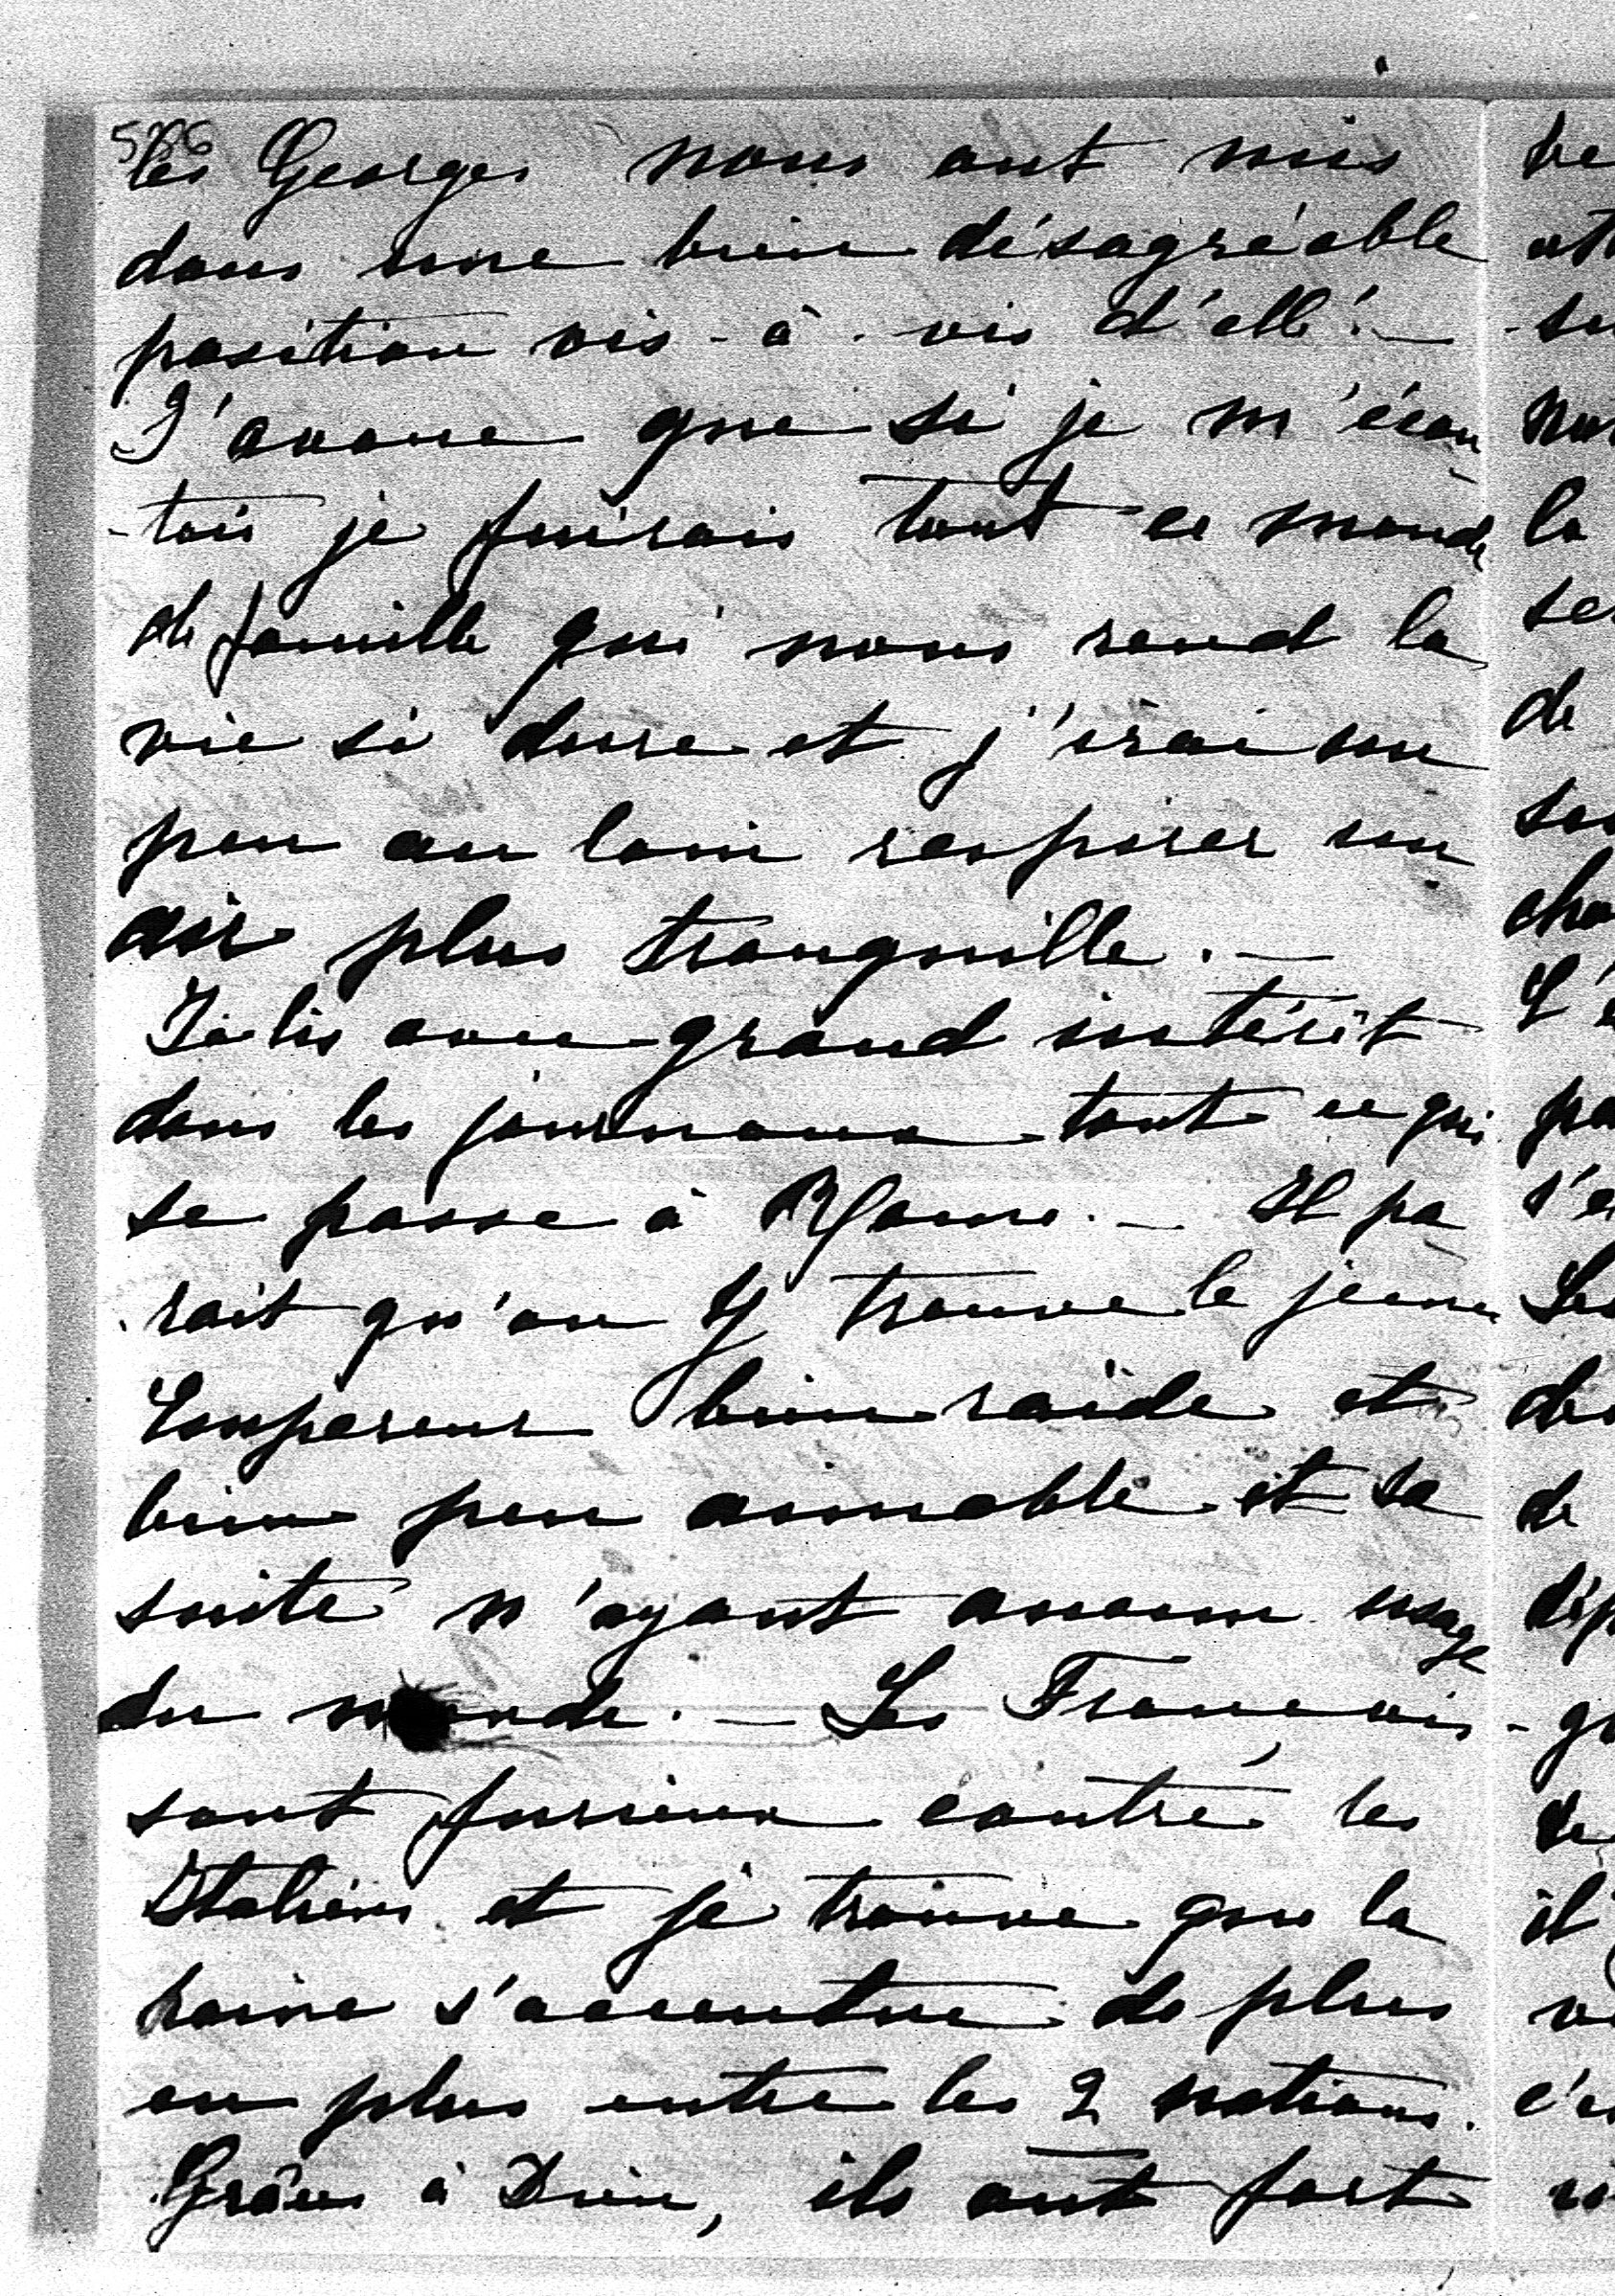 586
les Georges nous ont mis
dans une bien désagréable
position vis-à-vis d'elle! —
J'avoue que si je m'écou
-tais je fuirais tout ce monde
de famille qui nous rend la
vie si dure et j'irai un
peu au loin respirer un
air plus tranquille. —
Je lis avec grand intérêt
dans les journaux tout ce qui
se passe à Rome. — Il pa
-rait qu'on y trouve le jeune
Empereur bien raide et
bien peu aimable et sa
suite n'ayant aucun usage
du monde. — Les Français
sont furieux contre les
Italiens et je trouve que la
haine s'accentue de plus
en plus entre les 2 nations.
Grâces à Dieu, ils ont fort